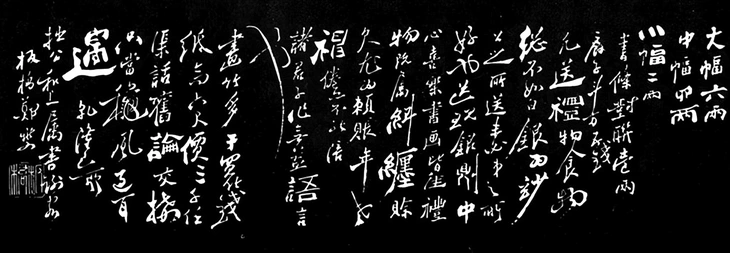 大幅六兩
中幅四兩
小幅二兩
書條對聯壹兩
扇子斗方五錢
凡送禮物食物
總不如白銀為妙
公之所送未必弟之所
好也送現銀則中
心喜樂書画皆佳禮
物既属糾纏賒
欠尤為賴賬年老
神倦不能陪
諸君子作無益語言
也
畫竹多于買竹錢
紙高六尺價三千任
渠話舊論交接
只當秋風過耳
邉 乾隆己卯
拙公和上属書謝客
板橋鄭燮